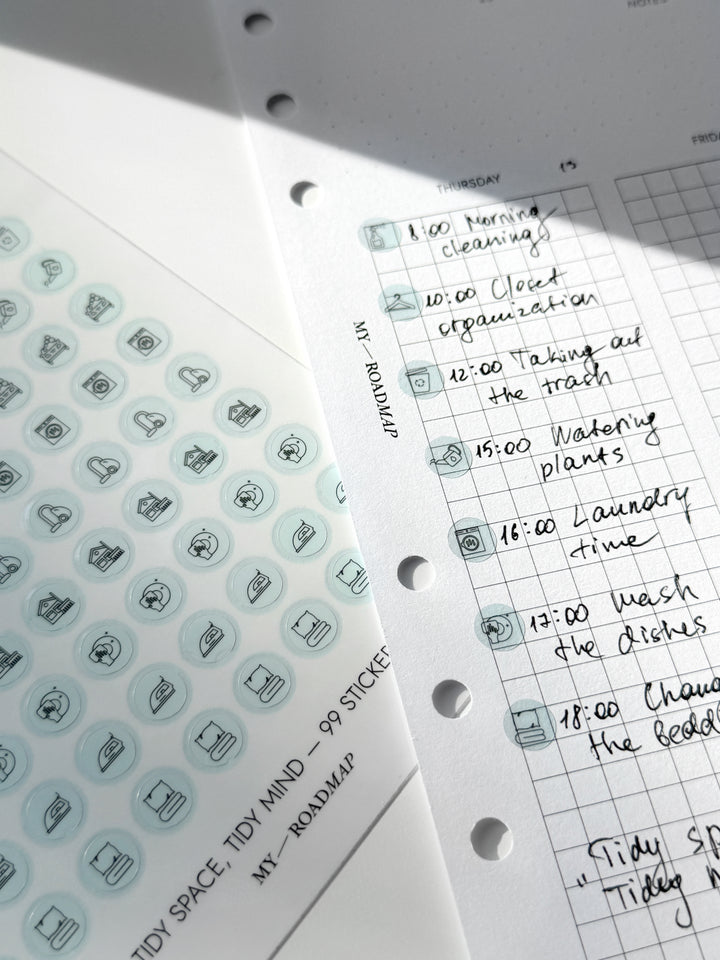 NOTES
THURSDAY
13
8:00 Morning
cleaning
10:00 Closet
organization
12:00 Taking out
the trash
15:00 Watering
plants
16:00 Laundry
time
17:00 Wash
the dishes
18:00
the
"Tidy
Tidy
MY — ROADMAP
TIDY SPACE, TIDY MIND — 99
MY — ROADMAP